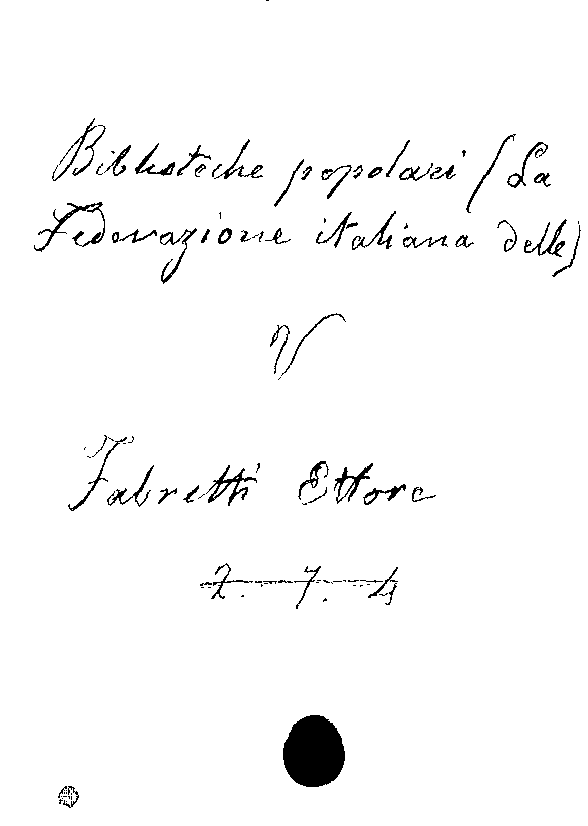 Biblioteche popolari (La
Federazione italiana delle)
V
Fabretti Ettore
2. 7. 4